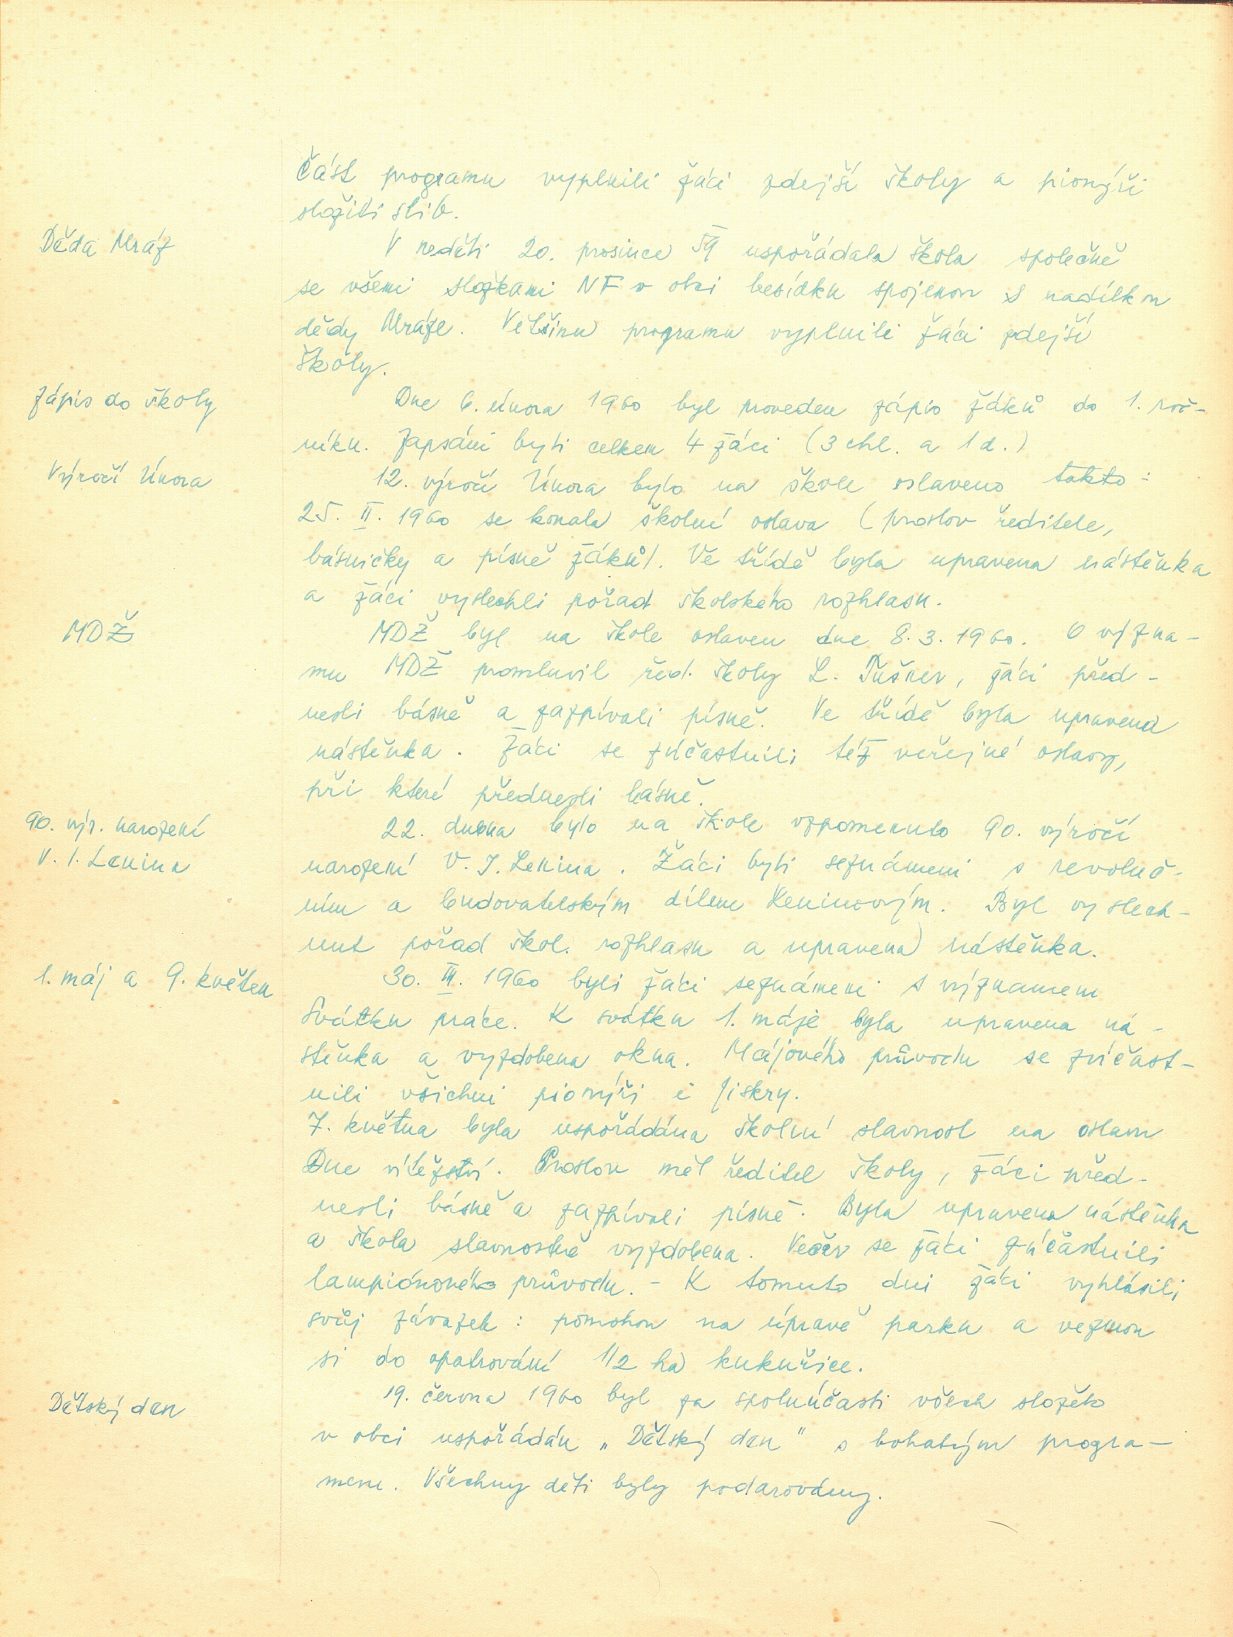 Část programu vyplnili žáci zdejší školy a pionýři
složili slib.
Děda Mráz
V neděli 20. prosince 59 uspořádala škola společně
se všemi složkami NF v obci besídku spojenou s nadílkou
dědy Mráze. Většinu programu vyplnili žáci zdejší
školy.
Zápis do školy
Dne 6. února 1960 byl proveden zápis žáků do 1. roč-
níku. Zapsáni byli celkem 4 žáci (3 chl. a 1 d.)
Výročí Února
12. výročí Února bylo na škole oslaveno takto:
25. II. 1960 se konala školní oslava (proslov ředitele,
básničky a písně žáků). Ve třídě byla upravena nástěnka
a žáci vyslechli pořad školského rozhlasu.
MDŽ
MDŽ byl na škole oslaven dne 8. 3. 1960. O význa-
mu MDŽ promluvil řed. školy L. , žáci před-
nesli básně a zazpívali písně. Ve třídě byla upravena
nástěnka. Žáci se zúčastnili též veřejné oslavy,
při které přednesli básně.
90. výr. narození
V. I. Lenina
22. dubna bylo na škole vzpomenuto 90. výročí
narození V. I. Lenina. Žáci byli seznámeni s revoluč-
ním a budovatelským dílem Leninovým. Byl vyslech-
nut pořad škol. rozhlasu a upravena nástěnka.
1. máj a 9. květen
30. III. 1960 byli žáci seznámeni s významem
Svátku práce. K svátku 1. máje byla upravena ná-
stěnka a vyzdobena okna. Májového průvodu se zúčast-
nili všichni pionýři i jiskry.
7. května byla uspořádána školní slavnost na oslavu
Dne vítězství. Proslov měl ředitel školy, žáci před-
nesli básně a zazpívali písně. Byla upravena nástěnka
a škola slavnostně vyzdobena. Večer se žáci zúčastnili
lampiónového průvodu. - K tomuto dni žáci vyhlásili
svůj závazek: pomohou na úpravě parku a vezmou
si do opatrování 1/2 ha kukuřice.
Dětský den
19. června 1960 byl za spoluúčasti všech složek
v obci uspořádán „Dětský den" s bohatým progra-
mem. Všechny děti byly podarovány.